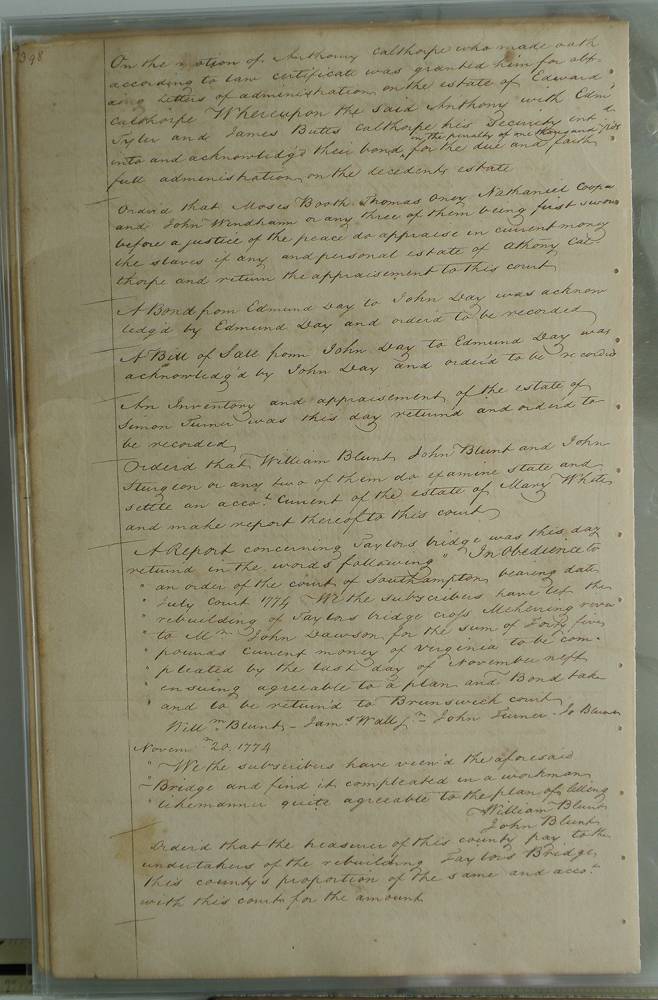 398
On the motion of Anthony Calthorpe who made oath
according to law certificate was granted him for obt-
aing letters of administration on the estate of Edward
Calthorpe Whereupon the said Anthony with Edmd
Tyler and James Butts Calthorpe his Security ent d
in the penalty of one thousand
into and acknowledg'd their bond for the due and faith
full administration on the decedents estate
Orderd that Moses Booth Thomas Oney Nathaniel Cooper
and John Windham or any three of them being first sworn
before a justice of the peace do appraise in current money
the slaves if any and personal estate of Athony Cal
thorpe and return the appraisement to this court
A Bond from Edmund Day to John Day was acknow
ledg'd by Edmund Day and orderd to be recorded
A Bill of Sale from John Day to Edmund Day was
acknowledg'd by John Day and order'd to be recorded
An Inventory and appraisement of the estate of
Simon Turner was this day returnd and orderd to
be recorded
Orderd that William Blunt John Blunt and John
Sturgeon or any two of them do examine state and
settle an accot. Current of the estate of Mary White
and make report thereof to this court
A Report concerning Taylors bridge was this day
returnd in the words following " In Obedience to
" an order of the court of Southampton bearing date
" July Court 1774 We the subscribers have let the
" rebuilding of Taylors bridge cross Meherring river
" to Mr. John Dawson for the sum of Forty five
" pounds Current money of Virginia to be com-
" pleated by the last day of November next
" ensuing agreeable to a plan and Bond take
" and to be return'd to Brunswick court
Willm. Blunt - Jams Wall Jr John Turner - Jo Blunt
Novem 20. 1774
" We the subscribers have view'd the aforesaid
" Bridge and find it compleated in a workman
" likemanner quite agreeable to the plan of letting
William Blunt
John Blunt
Orderd that the treasurer of this county pay to the
undertakers of the rebuilding Taylors Bridge
this county's proportion of the same and accot.
with this court for the amount